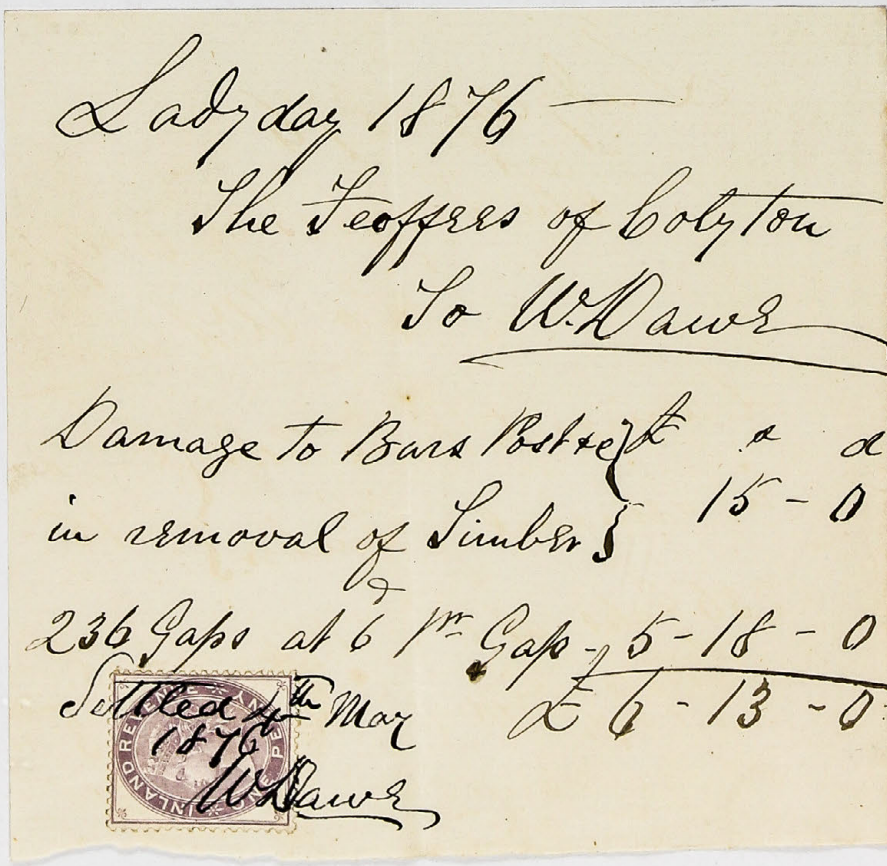 Ladyday 1876 —
The Feoffees of Colyton
To W. Dawe
Damage to Bars Post &c } £ s d
in removal of Timber } 15 - 0
236 Gaps at 6d pr Gap - 5 - 18 - 0
£ 6 - 13 - 0
Settled 4th May
1876
W Dawe
INLAND REVENUE
ONE PENNY